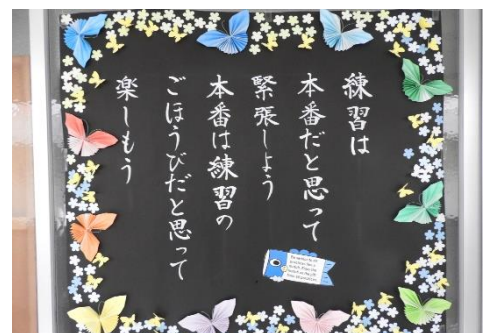 練習は
本番だと思って
緊張しよう
本番は練習の
ごほうびだと思って
楽しもう